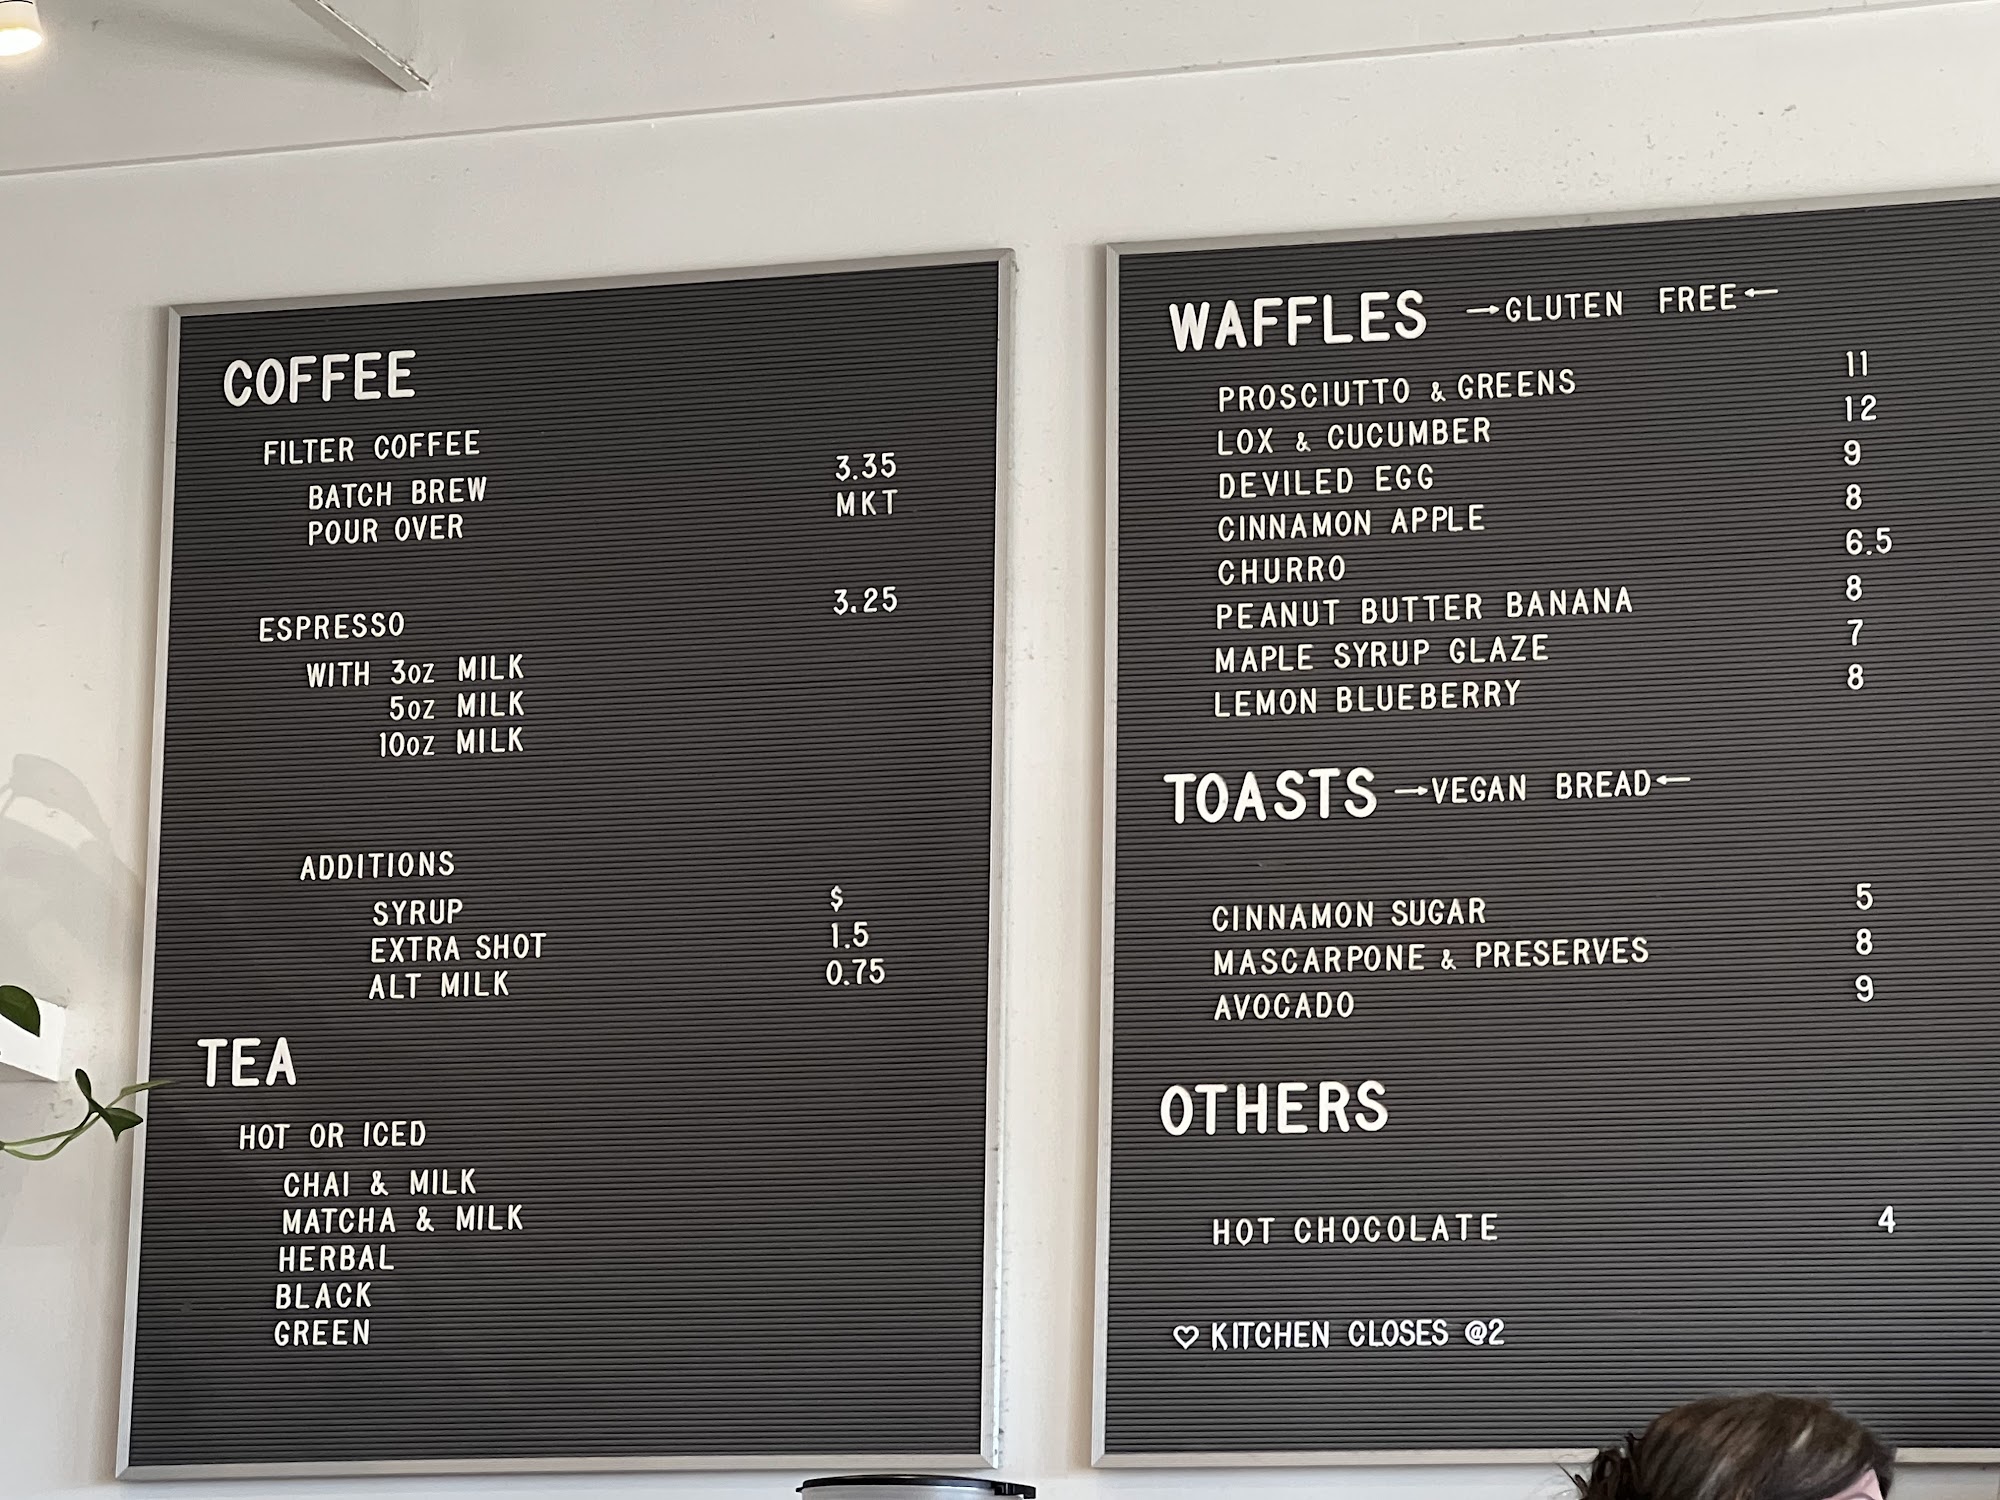 COFFEE
FILTER COFFEE
BATCH BREW 3.35
POUR OVER MKT
ESPRESSO 3.25
WITH 3oz MILK
5oz MILK
10oz MILK
ADDITIONS
SYRUP $
EXTRA SHOT 1.5
ALT MILK 0.75
TEA
HOT OR ICED
CHAI & MILK
MATCHA & MILK
HERBAL
BLACK
GREEN
WAFFLES →GLUTEN FREE←
PROSCIUTTO & GREENS 11
LOX & CUCUMBER 12
DEVILED EGG 9
CINNAMON APPLE 8
CHURRO 6.5
PEANUT BUTTER BANANA 8
MAPLE SYRUP GLAZE 7
LEMON BLUEBERRY 8
TOASTS →VEGAN BREAD←
CINNAMON SUGAR 5
MASCARPONE & PRESERVES 8
AVOCADO 9
OTHERS
HOT CHOCOLATE 4
♡ KITCHEN CLOSES @2